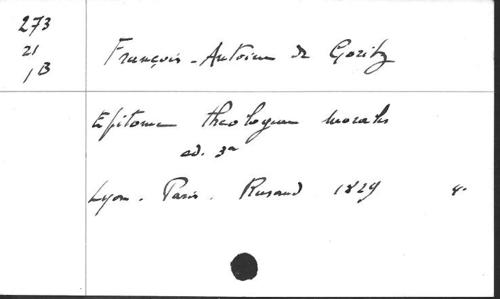 273
21
1B
François-Antoine de Goritz
Epitome theologiae moralis
ed. 3a
Lyon. Paris. Rusand 1829 4.